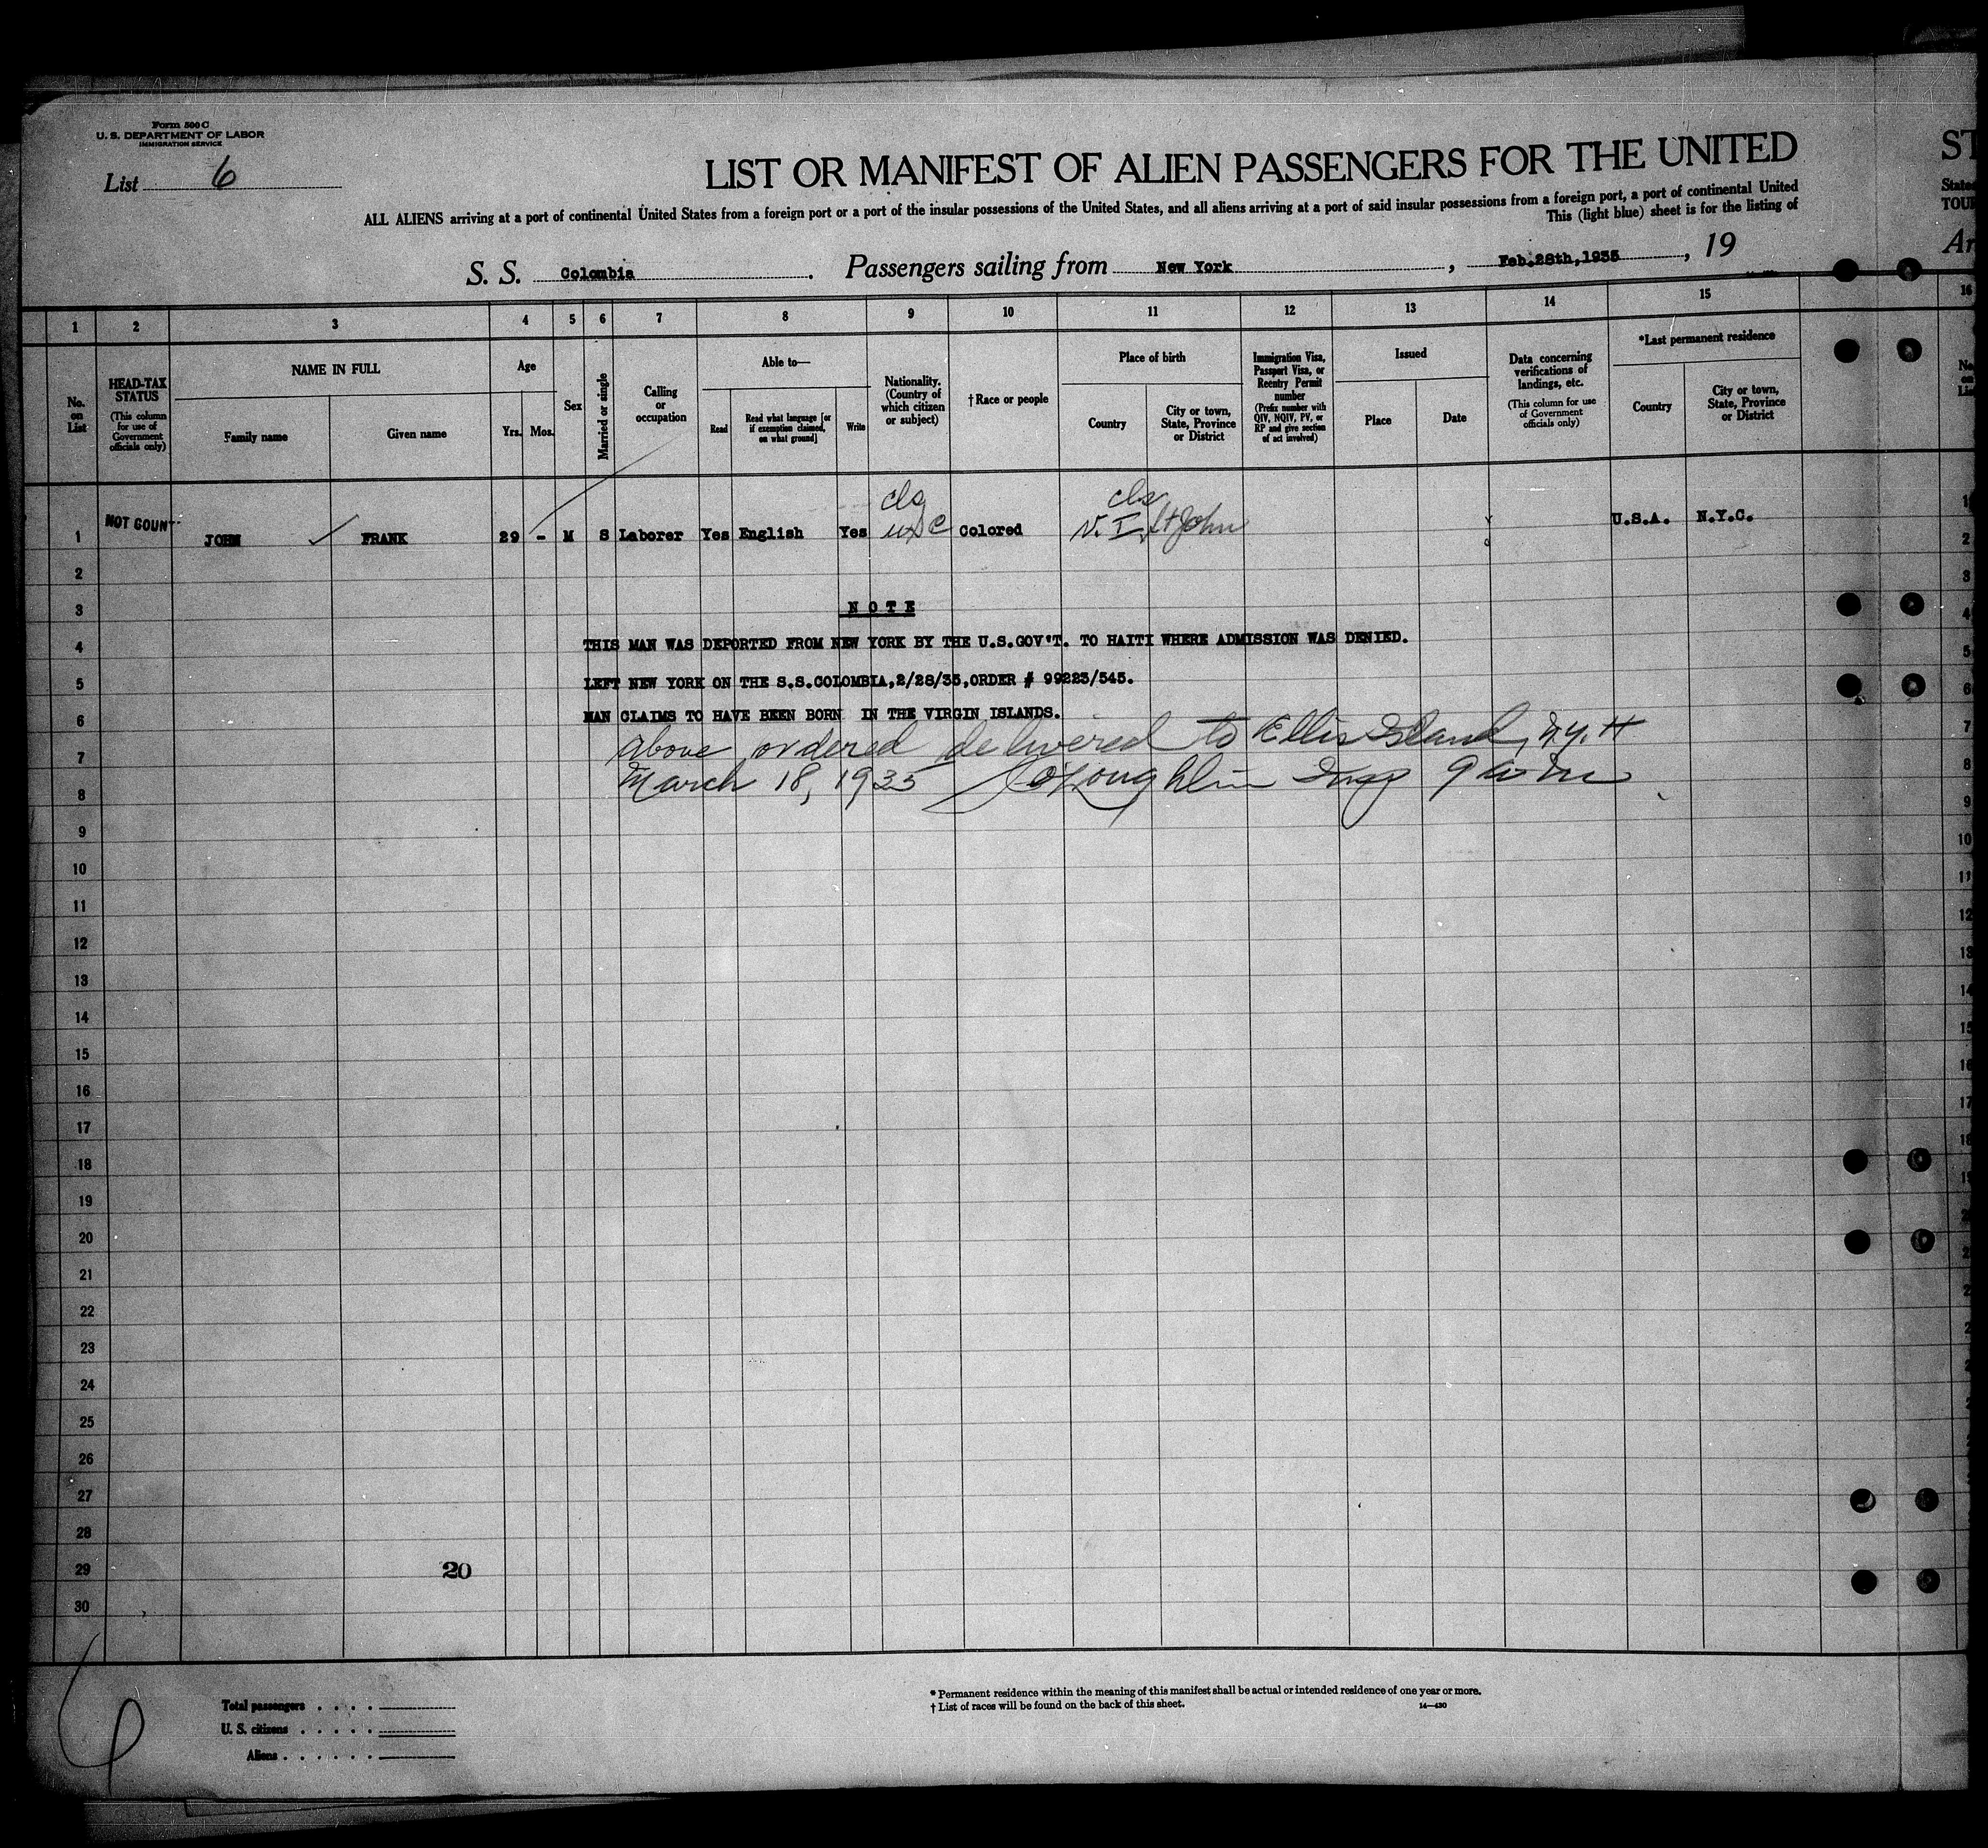 Form 500 C
U. S. DEPARTMENT OF LABOR
IMMIGRATION SERVICE
List 6
LIST OR MANIFEST OF ALIEN PASSENGERS FOR THE UNITED
ST
ALL ALIENS arriving at a port of continental United States from a foreign port or a port of the insular possessions of the United States, and all aliens arriving at a port of said insular possessions from a foreign port, a port of continental United
States
This (light blue) sheet is for the listing of
TOUR
S. S. Colombia. Passengers sailing from New York, Feb.28th,1935, 19
Ar
1 2 3 4 5 6 7 8 9 10 11 12 13 14 15 16
No. on List
HEAD-TAX STATUS
(This column for use of Government officials only)
NAME IN FULL
Family name
Given name
Age
Yrs. Mos.
Sex
Married or single
Calling or occupation
Able to—
Read
Read what language [or if exemption claimed, on what ground]
Write
Nationality. (Country of which citizen or subject)
†Race or people
Place of birth
Country
City or town, State, Province or District
Immigration Visa, Passport Visa, or Reentry Permit number
(Prefix number with QIV, NQIV, PV, or RP and give section of act involved)
Issued
Place
Date
Data concerning verifications of landings, etc.
(This column for use of Government officials only)
*Last permanent residence
Country
City or town, State, Province or District
cls cls
1 NOT COUNT JOHN FRANK 29 - M S Laborer Yes English Yes USC Colored V.I. St John U.S.A. N.Y.C.
2
3 NOTE
4 THIS MAN WAS DEPORTED FROM NEW YORK BY THE U.S.GOV'T. TO HAITI WHERE ADMISSION WAS DENIED.
5 LEFT NEW YORK ON THE S.S.COLOMBIA,2/28/35,ORDER # 99223/545.
6 MAN CLAIMS TO HAVE BEEN BORN IN THE VIRGIN ISLANDS.
7 above ordered delivered to Ellis Island, N.Y.H
8 March 18, 1935 Insp
9
10
11
12
13
14
15
16
17
18
19
20
21
22
23
24
25
26
27
28
29 20
30
Total passengers . . . .
U. S. citizens . . . . .
Aliens . . . . . .
* Permanent residence within the meaning of this manifest shall be actual or intended residence of one year or more.
† List of races will be found on the back of this sheet.
14—430